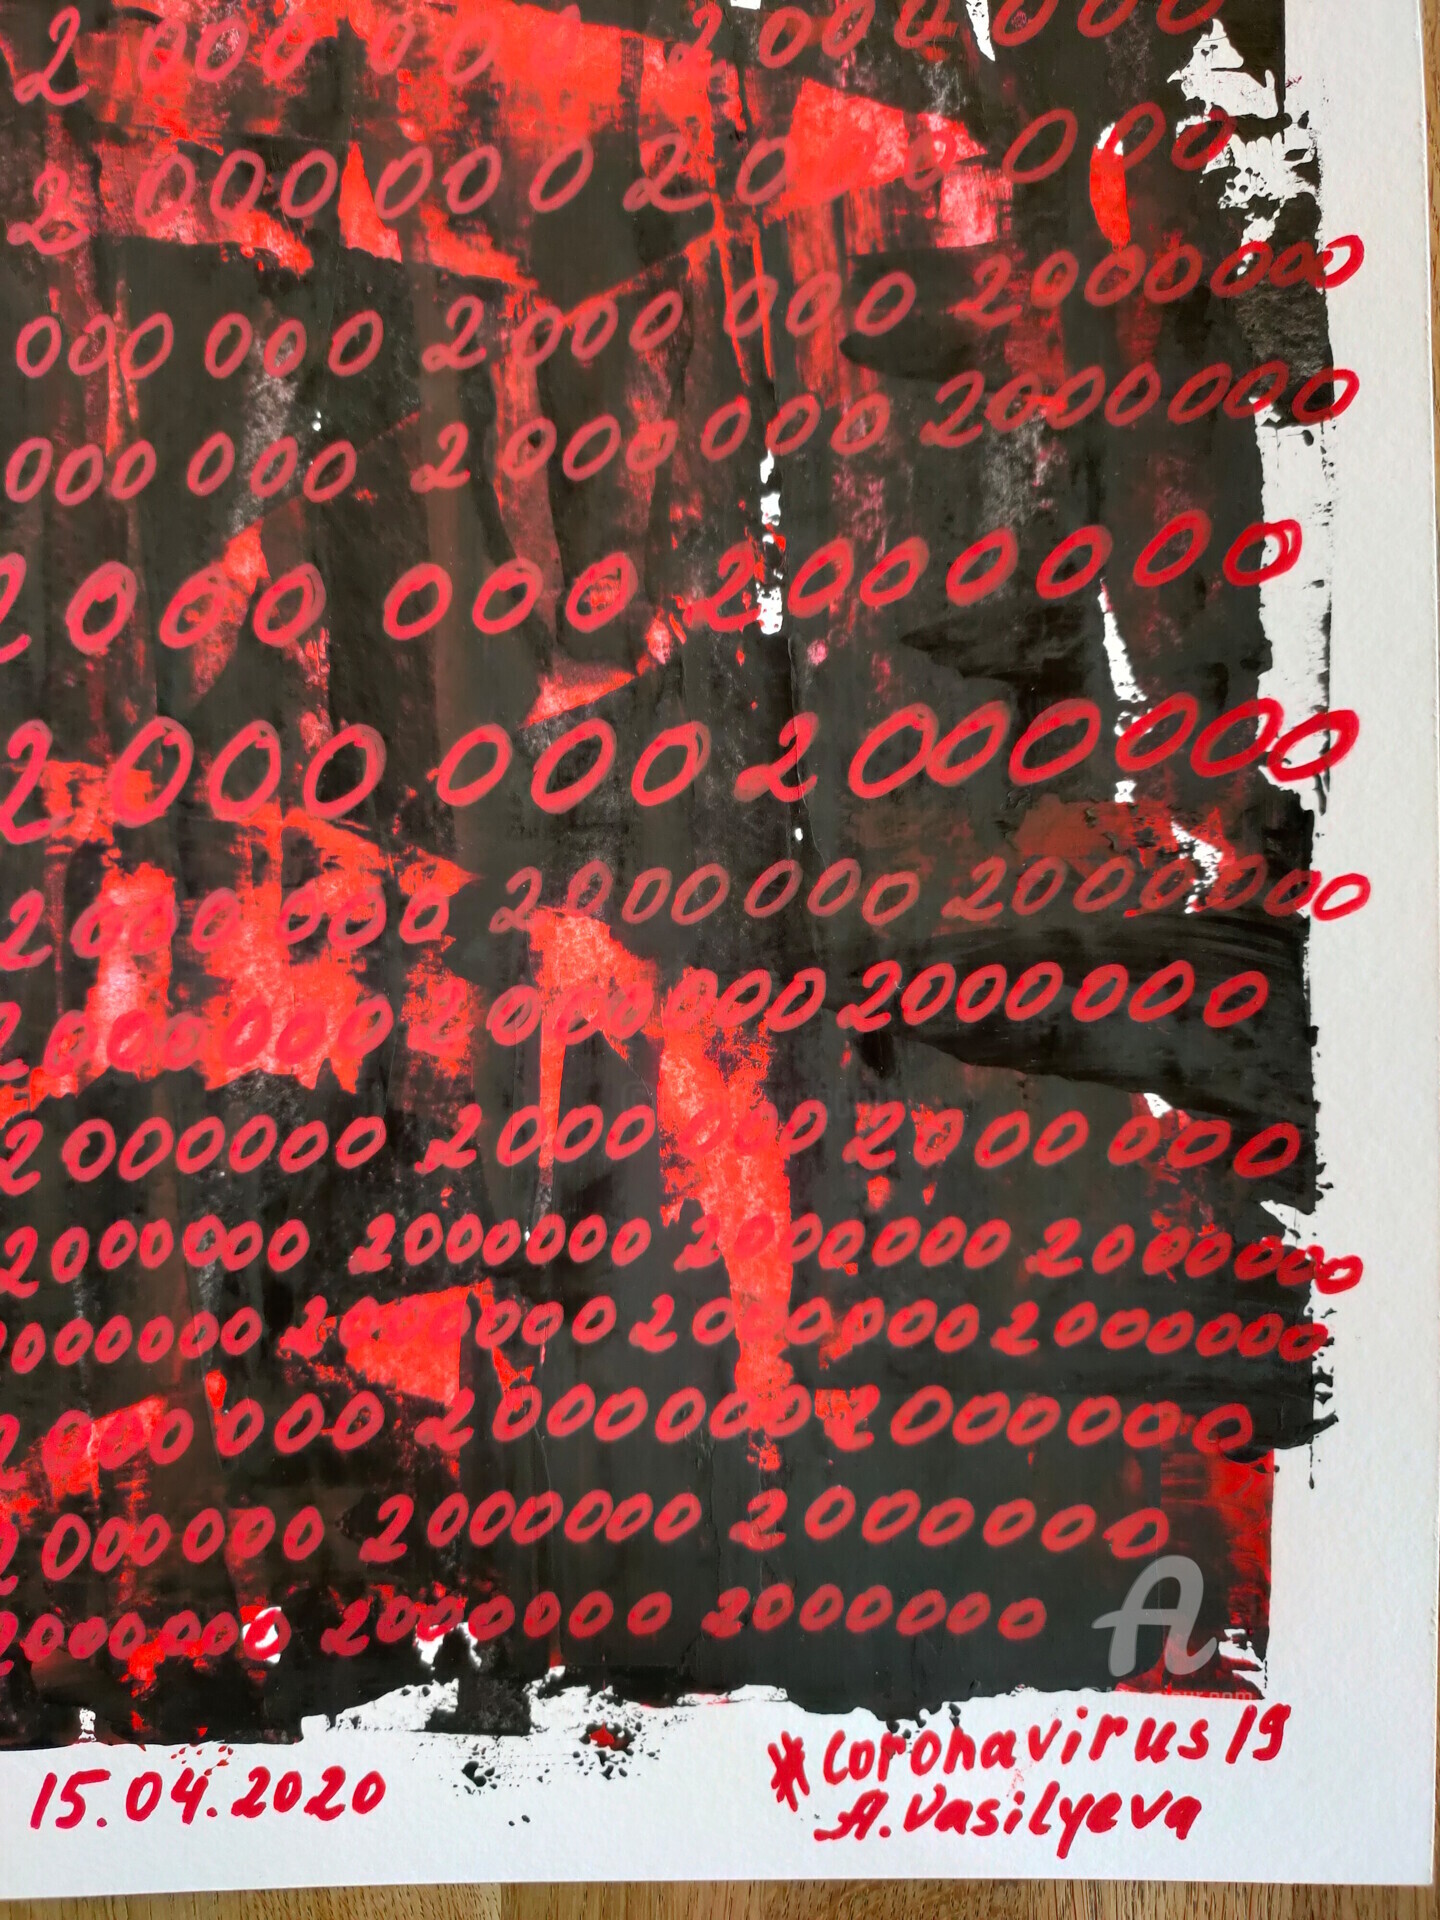 2 000 000 2 000 000
2 000 000 2 000 000
000 000 2 000 000 2000000
000 000 2 000 000 2000000
2 000 000 2 000 000
2 000 000 2 000 000
2 000 000 2000000 2000000
2000000 2000000 2000000
2000000 2000 000 2000 000
2000000 2000000 2000000 2000000
000000 2000000 2000000 2000000
2000 000 2000000 2000000
2000000 2000000 2000000
2000000 2000000 2000000
A
15.04.2020
#Coronavirus19
A.Vasilyeva